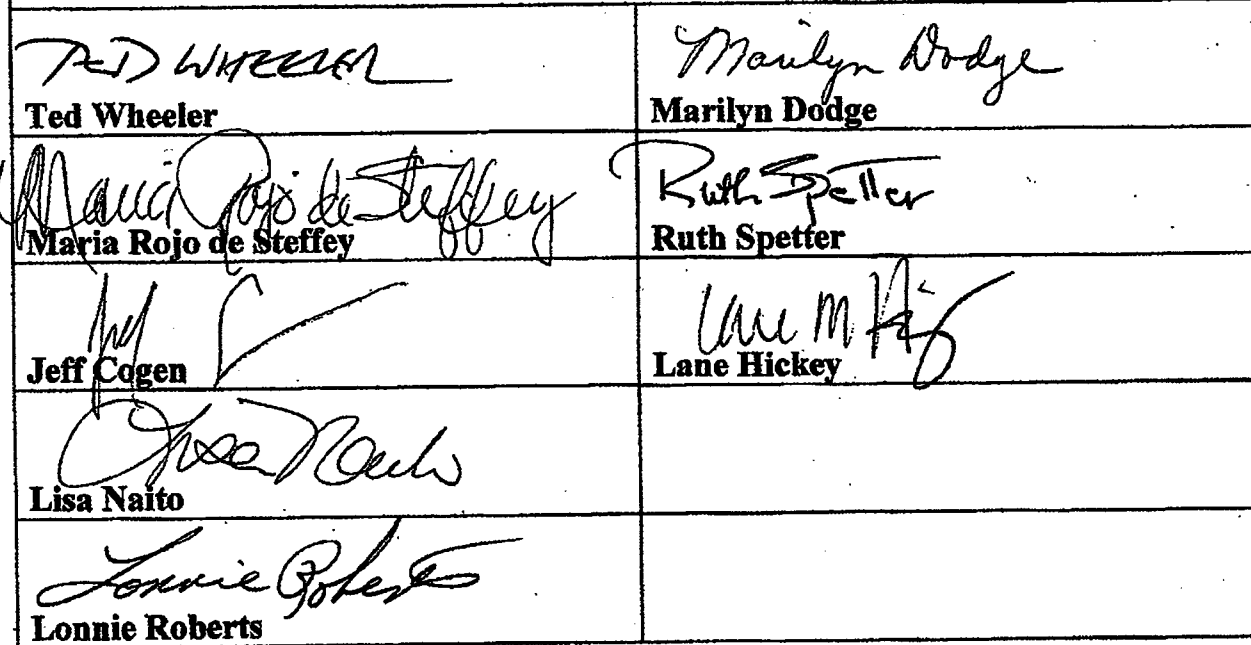 TED WHEELER
Ted Wheeler
Marilyn Dodge
Marilyn Dodge
Maria Rojo de Steffey
Maria Rojo de Steffey
Ruth Spetter
Ruth Spetter
Jeff
Jeff Cogen
Lane M
Lane Hickey
Lisa Naito
Lisa Naito
Lonnie Roberts
Lonnie Roberts